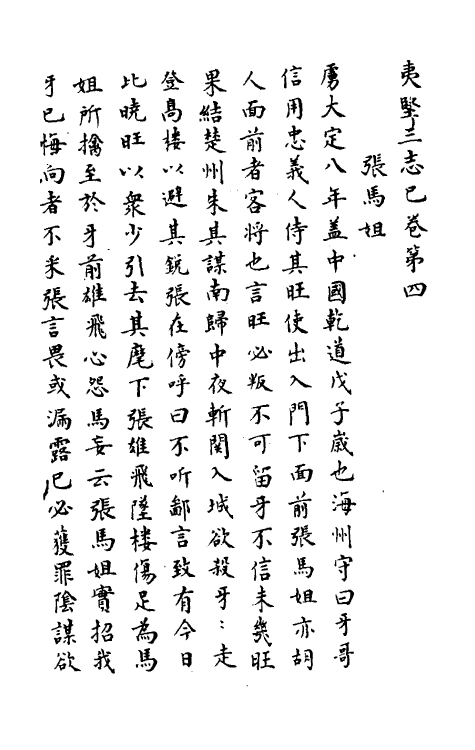 夷堅三志已卷第四
張馬姐
虜大定八年盖中國乾道戊子歲也海州守曰牙哥
信用忠義人侍其旺使出入門下面前張馬姐亦胡
人面前者客將也言旺必叛不可留牙不信未幾旺
果結楚州朱其謀南歸中夜斬関入城欲殺牙〻走
登髙樓以避其鋭張在傍呼曰不听鄙言致有今日
比曉旺以衆少引去其麾下張雄飛墜樓傷足為馬
姐所擒至於牙前雄飛心怨馬妄云張馬姐實招我
牙已悔向者不采張言畏或漏露已必獲罪陰謀欲